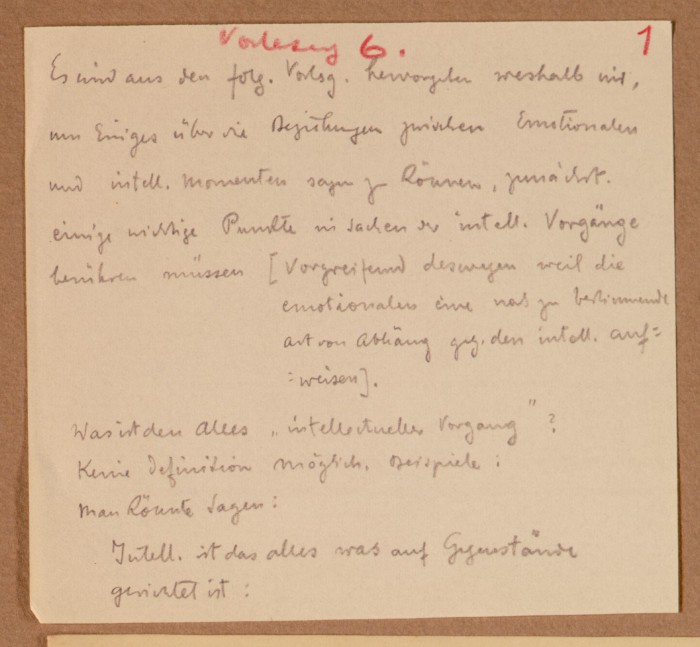 Vorlesung 6. 1
Es wird aus den folg. Vorlsg. hervorgehen weshalb wir,
um Einiges über die Beziehungen zwischen Emotionalen
und intell. Momenten sagen zu können, zunächst.
einige wichtige Punkte in Sachen der intell. Vorgänge
berühren müssen [Vorgreifend deswegen weil die
emotionalen eine noch zu bestimmende
Art von Abhäng geg. den intell. auf=
=weisen].
Was ist den Alles „intellectueller Vorgang" ?
Keine Definition möglich. Beispiele :
Man könnte sagen :
Intell. ist das alles was auf Gegenstände
gerichtet ist :